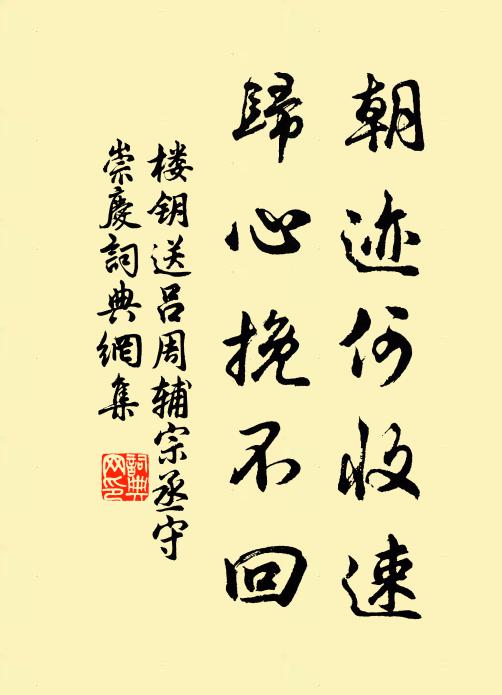 朝迹何收速
歸心挽不回
楼钥送吕周辅宗丞守
崇慶詞典網集
詞典
网印